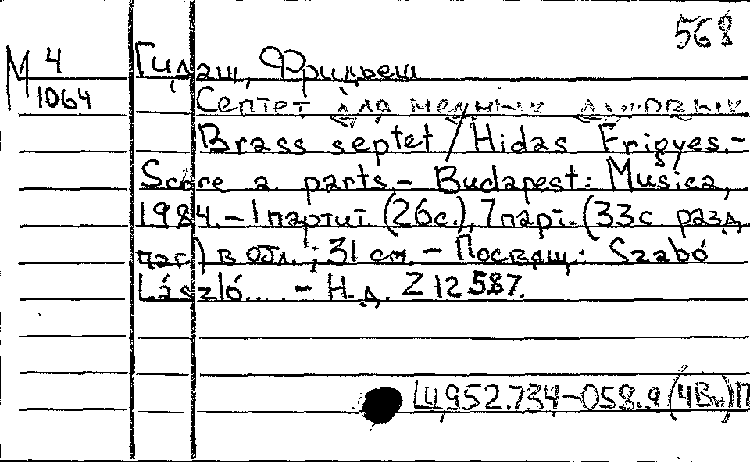 568
М 4
1064
Гидаш, Фридьеш
Септет для медных духовых
Brass septet / Hidas Frigyes.-
Score a parts.- Budapest: Musica,
1984.- 1 партит. (26с.), 7 парт. (33с разд.
пас) в обл.; 31 см. - Посвящ.: Szabó
László... - Н.д. Z 12587.
Щ952.734-058.9(4Вн)П